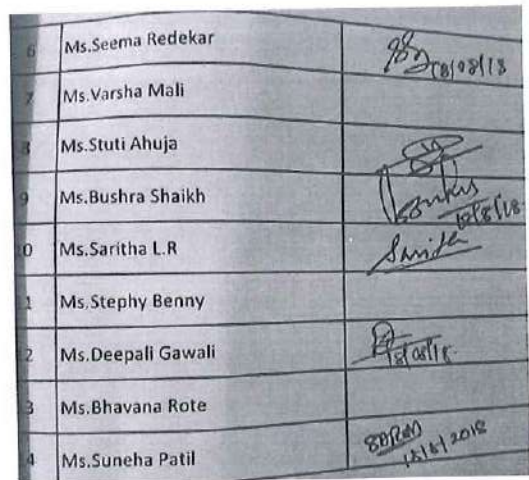 6 Ms.Seema Redekar 18/08/18
7 Ms.Varsha Mali
8 Ms.Stuti Ahuja
9 Ms.Bushra Shaikh 18/8/18
0 Ms.Saritha L.R Saritha
1 Ms.Stephy Benny
2 Ms.Deepali Gawali 18/08/18
3 Ms.Bhavana Rote
4 Ms.Suneha Patil 18/8/2018